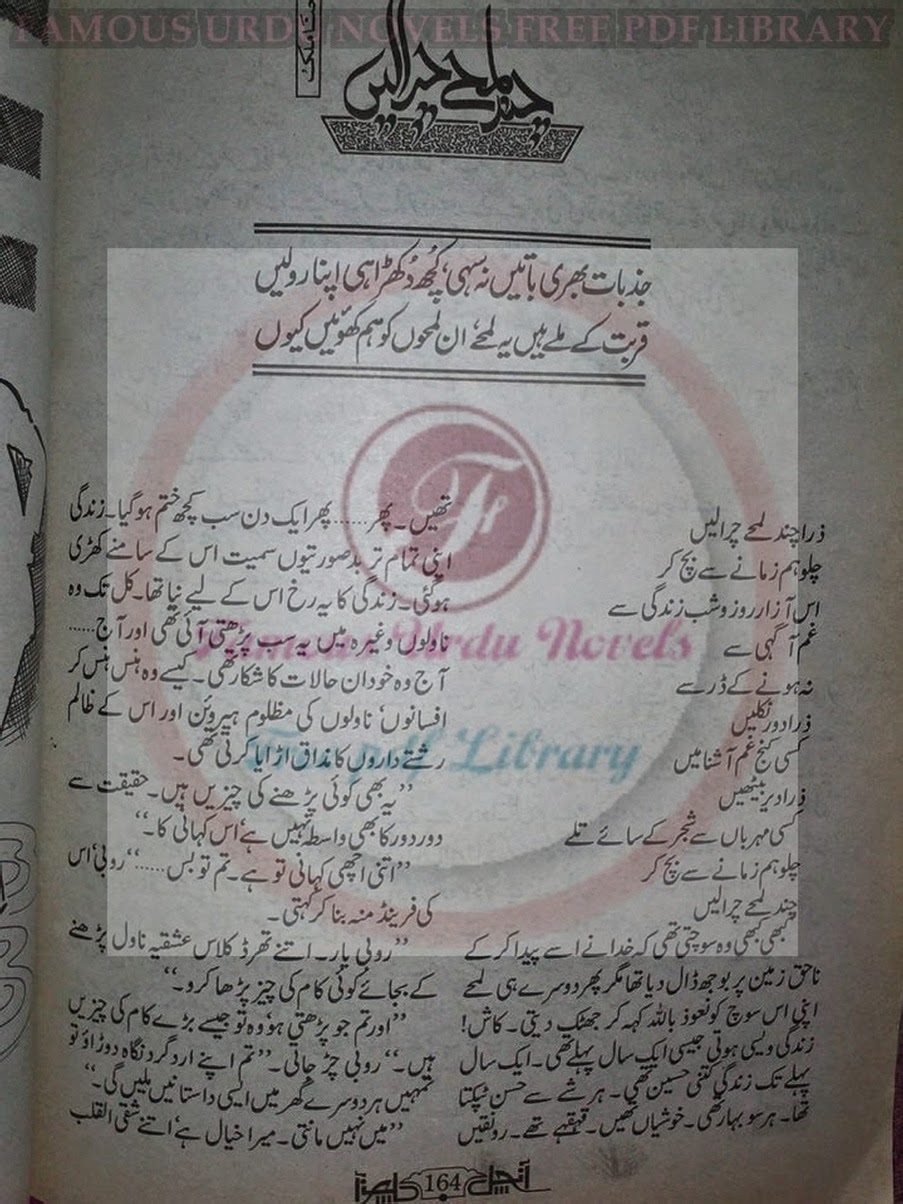 FAMOUS URDU NOVELS FREE PDF LIBRARY
چند لمحے چرالیں
جذبات بھری باتیں نہ سہی، کچھ دُکھڑا ہی اپنا رولیں
قربت کے ملے ہیں یہ لمحے، ان لمحوں کو ہم کھوئیں کیوں
ذرا چند لمحے چرالیں
چلو ہم زمانے سے بچ کر
اس آزار روز و شب زندگی سے
غم آگہی سے
نہ ہونے کے ڈر سے
ذرا دور نکلیں
کسی کنج غم آشنا میں
ذرا دیر بیٹھیں
کسی مہرباں سے شجر کے سائے تلے
چلو ہم زمانے سے بچ کر
چند لمحے چرالیں
کبھی کبھی وہ سوچتی تھی کہ خدا نے اسے پیدا کر کے
ناحق زمین پر بوجھ ڈال دیا تھا مگر پھر دوسرے ہی لمحے
اپنی اس سوچ کو نعوذ باللہ کہہ کر جھٹک دیتی۔ کاش!
زندگی ویسی ہوتی جیسی ایک سال پہلے تھی۔ ایک سال
پہلے تک زندگی کتنی حسین تھی۔ ہر شے سے حسن ٹپکتا
تھا۔ ہر سو بہار تھی۔ خوشیاں تھیں۔ قہقہے تھے۔ رونقیں
تھیں۔ پھر...... پھر ایک دن سب کچھ ختم ہوگیا۔ زندگی
اپنی تمام تر بدصورتیوں سمیت اس کے سامنے کھڑی
ہوگئی۔ زندگی کا یہ رخ اس کے لیے نیا تھا۔ کل تک وہ
ناولوں وغیرہ میں یہ سب پڑھتی آئی تھی اور آج......
آج وہ خود ان حالات کا شکار تھی۔ کیسے وہ ہنس ہنس کر
افسانوں، ناولوں کی مظلوم ہیروئن اور اس کے ظالم
رشتے داروں کا مذاق اڑایا کرتی تھی۔
”یہ بھی کوئی پڑھنے کی چیزیں ہیں۔ حقیقت سے
دور دور کا بھی واسطہ نہیں ہے، اس کہانی کا۔“
”اتنی اچھی کہانی تو ہے۔ تم تو بس......“ روبی، اس
کی فرینڈ منہ بنا کر کہتی۔
”روبی یار۔ اتنے تھرڈ کلاس عشقیہ ناول پڑھنے
کے بجائے کوئی کام کی چیز پڑھا کرو۔“
”اور تم جو پڑھتی ہو، وہ تو جیسے بڑے کام کی چیزیں
ہیں۔“ روبی چڑ جاتی۔ ”تم اپنے اردگرد نگاہ دوڑاؤ تو
تمہیں ہر دوسرے گھر میں ایسی داستانیں ملیں گی۔“
”میں نہیں مانتی۔ میرا خیال ہے، اتنے شقی القلب
Famous Urdu Novels
Free pdf Library
آنچل 164